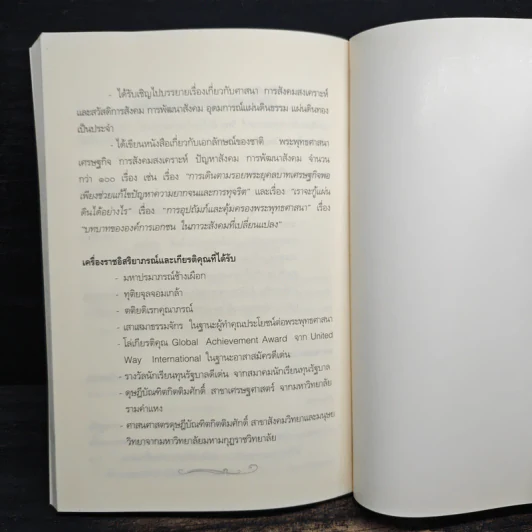 - ได้รับเชิญไปบรรยายเรื่องเกี่ยวกับศาสนา การสังคมสงเคราะห์
และสวัสดิการสังคม การพัฒนาสังคม อุดมการณ์แผ่นดินธรรม แผ่นดินทอง
เป็นประจำ
- ได้เขียนหนังสือเกี่ยวกับเอกลักษณ์ของชาติ พระพุทธศาสนา
เศรษฐกิจ การสังคมสงเคราะห์ ปัญหาสังคม การพัฒนาสังคม จำนวน
กว่า ๑๐๐ เรื่อง เช่น เรื่อง "การเดินตามรอยพระยุคลบาทเศรษฐกิจพอ
เพียงช่วยแก้ไขปัญหาความยากจนและการทุจริต" และเรื่อง "เราจะกู้แผ่น
ดินได้อย่างไร" เรื่อง "การอุปถัมภ์และคุ้มครองพระพุทธศาสนา" เรื่อง
"บทบาทขององค์การเอกชน ในภาวะสังคมที่เปลี่ยนแปลง"
เครื่องราชอิสริยาภรณ์และเกียรติคุณที่ได้รับ
- มหาปรมาภรณ์ช้างเผือก
- ทุติยจุลจอมเกล้า
- ตติยดิเรกคุณาภรณ์
- เสาเสมาธรรมจักร ในฐานะผู้ทำคุณประโยชน์ต่อพระพุทธศาสนา
- โล่เกียรติคุณ Global Achievement Award จาก United
Way International ในฐานะอาสาสมัครดีเด่น
- รางวัลนักเรียนทุนรัฐบาลดีเด่น จากสมาคมนักเรียนทุนรัฐบาล
- ดุษฎีบัณฑิตกิตติมศักดิ์ สาขาเศรษฐศาสตร์ จากมหาวิทยาลัย
รามคำแหง
- ศาสนศาสตรดุษฎีบัณฑิตกิตติมศักดิ์ สาขาสังคมวิทยาและมนุษย
วิทยาจากมหาวิทยาลัยมหามกุฏราชวิทยาลัย